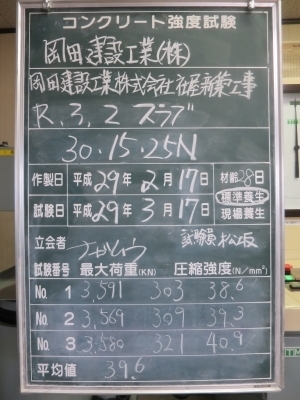 コンクリート強度試験
岡田建設工業(株)
岡田建設工業株式会社社屋新築工事
R,3,2 スラブ
30-15-25N
作製日 平成29年2月17日 材齢28日
標準養生
試験日 平成29年3月17日 現場養生
立会者 試験員 松坂
試験番号 最大荷重(KN) 圧縮強度(N/mm²)
No. 1 3,591 303 38.6
No. 2 3,569 309 39.3
No. 3 3,580 321 40.9
平均値 39.6